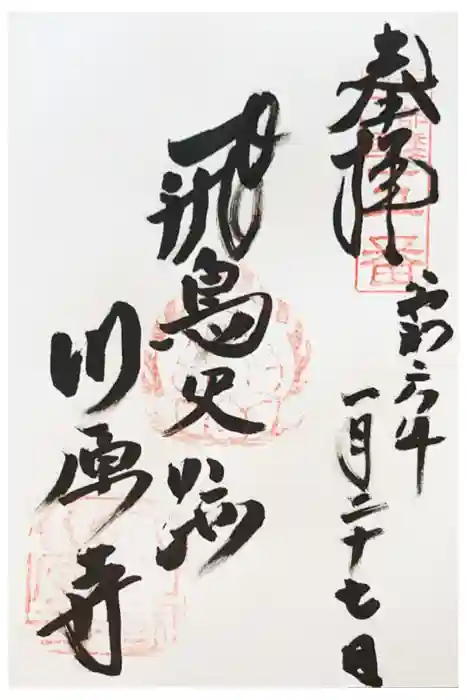 奉拝
令和六年
一月二十七日
飛鳥史跡
川原寺